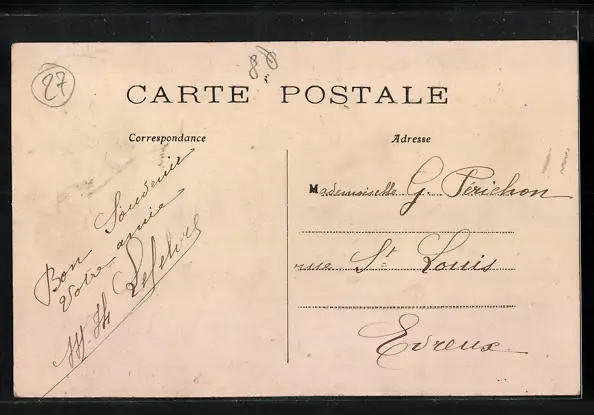 27
CARTE POSTALE
Correspondance
Adresse
Bon Souvenir
Votre amie
M. Th Lefebvre
Mademoiselle G. Périchon
rue St Louis
Evreux